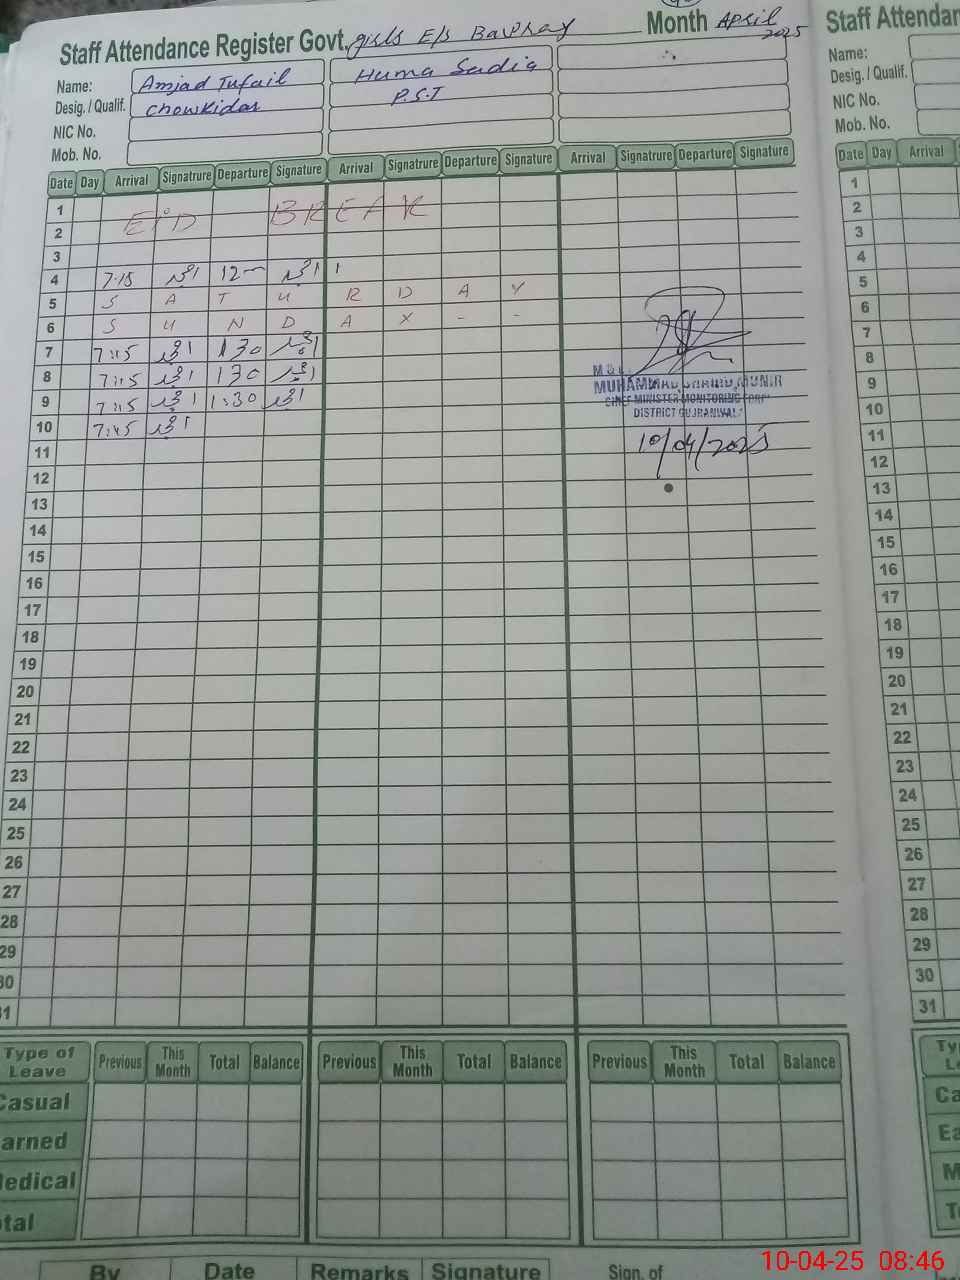 Staff Attendance Register Govt. girls E/s Month April 2025
Name: Amjad Tufail Huma Sadia
Desig. / Qualif. Chowkidar P.S.T
NIC No.
Mob. No.
Date Day Arrival Signatrure Departure Signature Arrival Signatrure Departure Signature Arrival Signatrure Departure Signature
1
2 EiD BREAK
3
4 7.15 12
5 S A T U R D A Y
6 S U N D A Y - -
7 7:15 1 30
8 7:15 1 30
9 7:15 1:30
10 7:45
11
12
13
14
15
16
17
18
19
20
21
22
23
24
25
26
27
28
29
30
31
MUHAMMAD MUNIR
CHIEF MINISTER MONITORING FORCE
DISTRICT GUJRANWALA
10/04/2025
Type of Leave Previous This Month Total Balance Previous This Month Total Balance Previous This Month Total Balance
Casual
Earned
Medical
Total
By Date Remarks Signature Sign. of
Staff Attendan
Name:
Desig. / Qualif.
NIC No.
Mob. No.
Date Day Arrival
1
2
3
4
5
6
7
8
9
10
11
12
13
14
15
16
17
18
19
20
21
22
23
24
25
26
27
28
29
30
31
Ty
Le
Ca
Ea
M
T
10-04-25 08:46